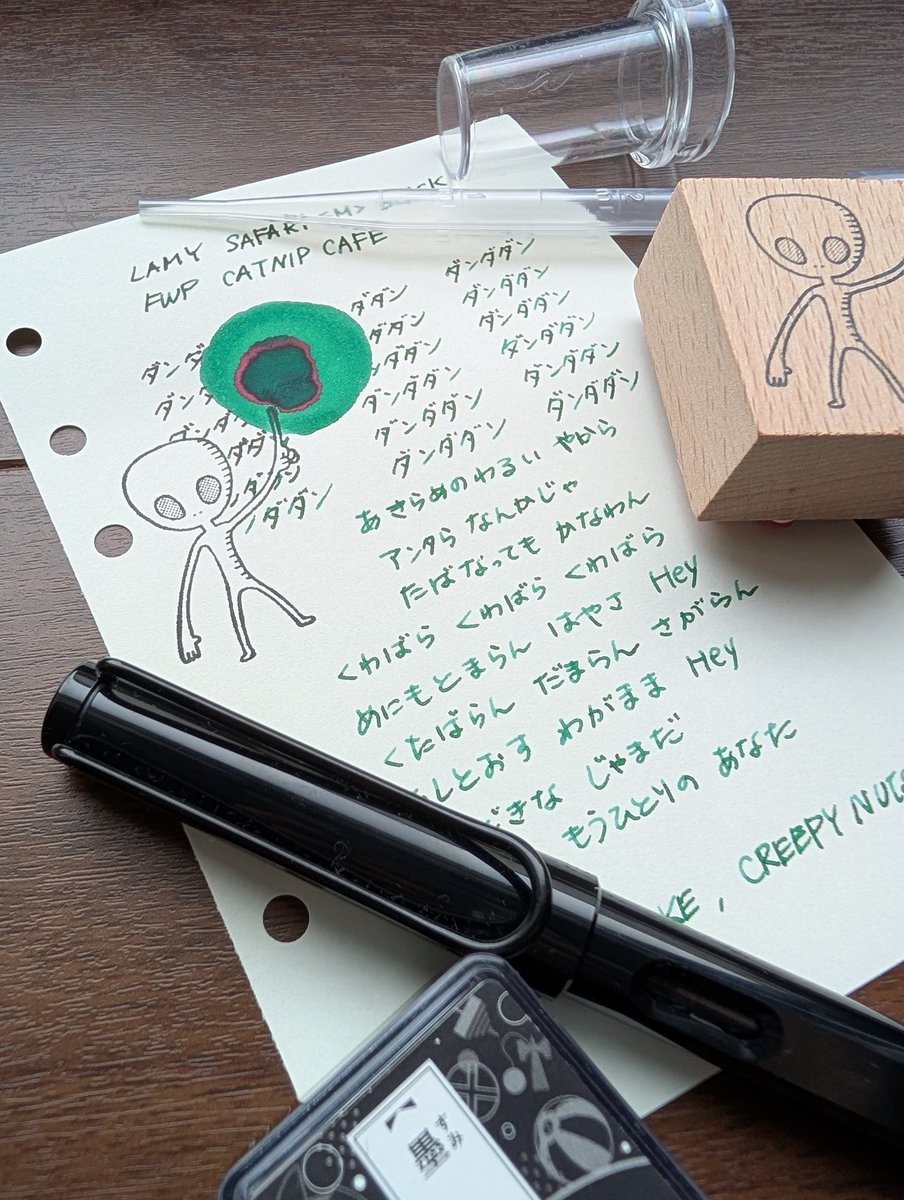 LAMY SAFARI <M> BLACK
FWP CATNIP CAFE
ダンダ ダダン ダンダダン
ダン ダダン ダンダダン
ダン ダダン ダンダダン
ダダ ダンダダン ダンダダン
ダダン ダンダダン ダンダダン
ダダン ダンダダン ダンダダン
あきらめのわるい やから
アンタら なんかじゃ
たばなっても かなわん
くわばら くわばら くわばら
めにもとまらん はやさ Hey
くたばらん だまらん さがらん
しとおす わがまま Hey
きな じゃまだ
もうひとりの あなた
KE, CREEPY NUTS
すみ
墨